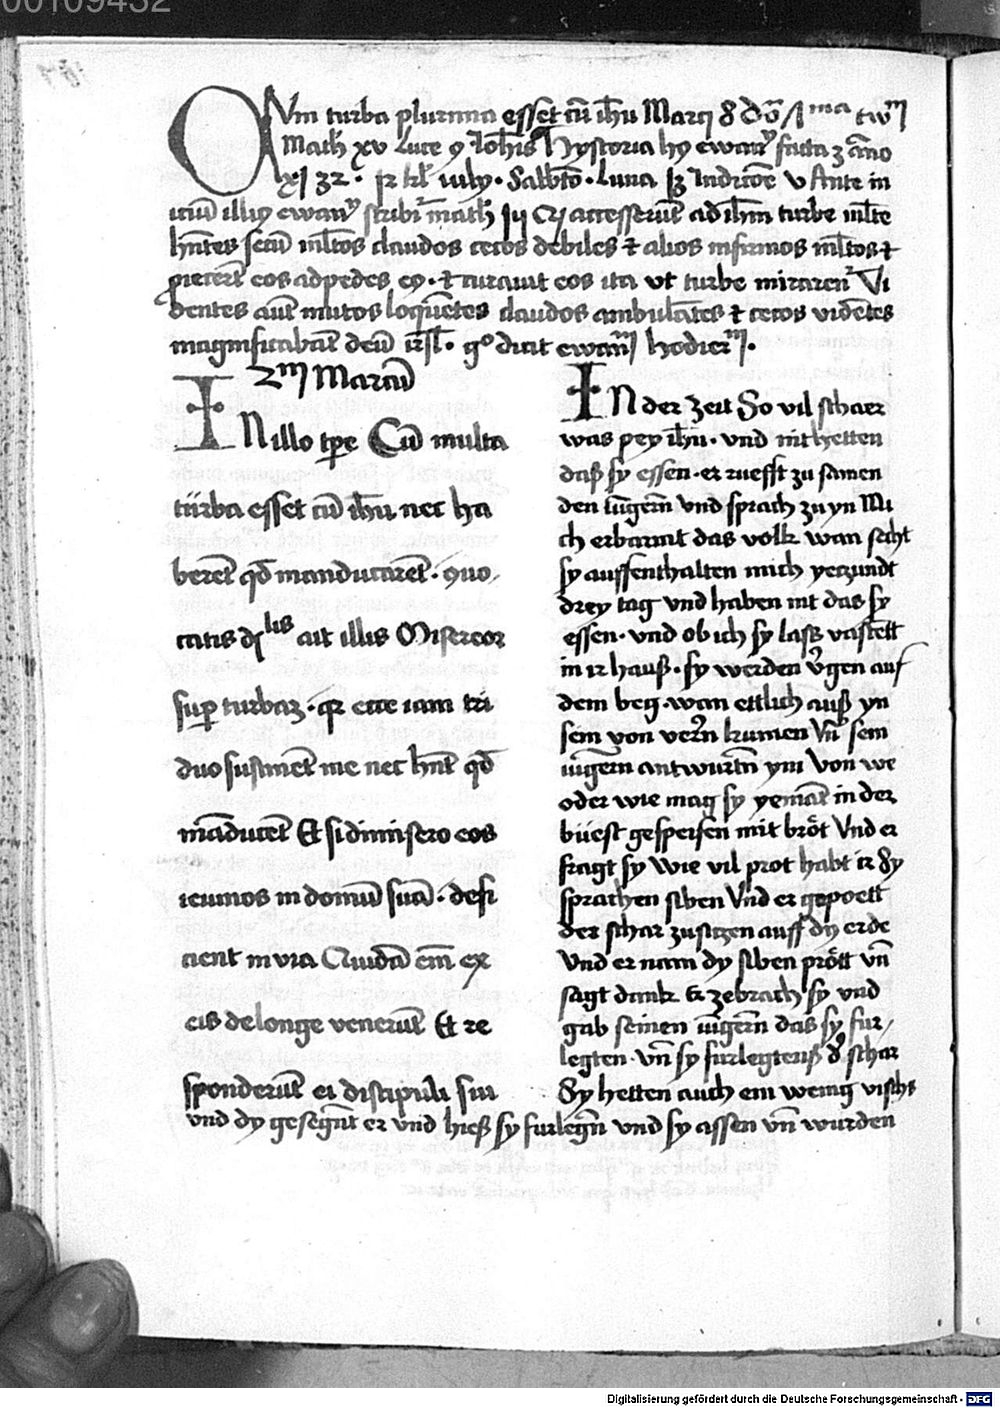 00109432
CUm turba plurima esset cū ih̄u Marci 8
Math xv Luce 9 Joh̄is Hystoria hꝰ ewanꝭ facta anno
July · Sabbto · Luna Indictōe v Ante in
iciū illiꝰ ewanꝭ scribit math accesserūt ad ih̄m turbe ml̄te
hn̄tes secū ml̄tos claudos cecos debiles ⁊ alios infirmos ml̄tos ⁊
ꝓiecerūt eos ad pedes eꝰ · ⁊ curauit eos ita vt turbe mirarent Vi
dentes aūt mutos loquētes claudos ambulātes ⁊ cecos vidētes
magnificabāt deū isrl̄ · gͦ dicit
2m Marcū
IN illo tp̄e Cū multa
turba esset cū ih̄u nec ha
berēt qd̄ manducarēt · 9uo
catis dilis ait illis Misereor
suꝑ turbaꝫ · qꝛ ecce iam tri
duo sustinēt me nec hn̄t qd̄
māducēt Et si dimisero eos
ieiunos in domū suā · defi
cient in via Quidā em̄ ex
eis de longe venerūt Et re
sponderūt ei discipuli sui
IN der zeit So vil schaer
was pey ih̄u · vnd nit hetten
daß sy essen · er ruefft zu samen
den iūgern̄ vnd sprach zu yn Mi
ch erbarmt das volk wan secht
sy auffenthalten mich yeczundt
drey tag vnd haben nit das sy
essen · vnd ob ich sy lass vastētt
in ir hauß · sy werden v̄gen auf
dem beg · wan ettlich auß yn
sein von verrn kumen Vn̄ sein
iūgern antwurtn̄ ym Von we
oder wie mag sy yemāt in der
wüest gespeisen mit bröt Vnd er
fragt sy Wie vil prot habt ir Sy
sprachen siben Vnd er gepoett
der schar zu siczen auff dy erde
Vnd er nam dy siben prött vn̄
sagt dank Er zebrach sy vnd
gab seinen iūgern̄ das sy fur
legten · vn̄ sy furlegtenß d' schar
Sy hetten auch ein wenig vischs
vnd dy gesegn̄t er vnd hieß sy furlegn̄ vnd sy assen vn̄ wurden
Digitalisierung gefördert durch die Deutsche Forschungsgemeinschaft - DFG